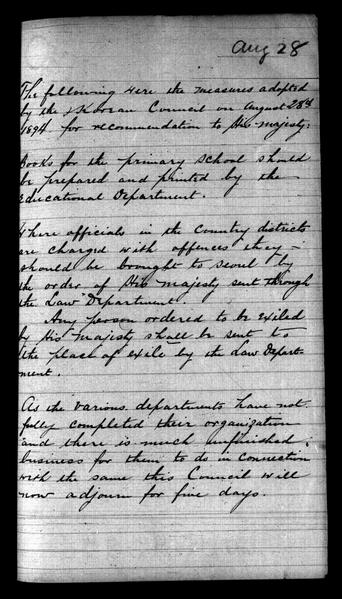 Aug 28
The following were the measures adopted
by the Korean Council on August 28th
1894 for recommendation to His Majesty:
Books for the primary school should
be prepared and printed by the
Educational Department.
Where officials in the Country districts
are charged with offences they
should be brought to Seoul by
the order of His Majesty sent through
the Law Department.
Any person ordered to be exiled
by His Majesty shall be sent to
the place of exile by the Law Depart-
ment.
As the various departments have not
fully completed their organization
and there is much unfinished
business for them to do in connection
with the same this Council will
now adjourn for five days.